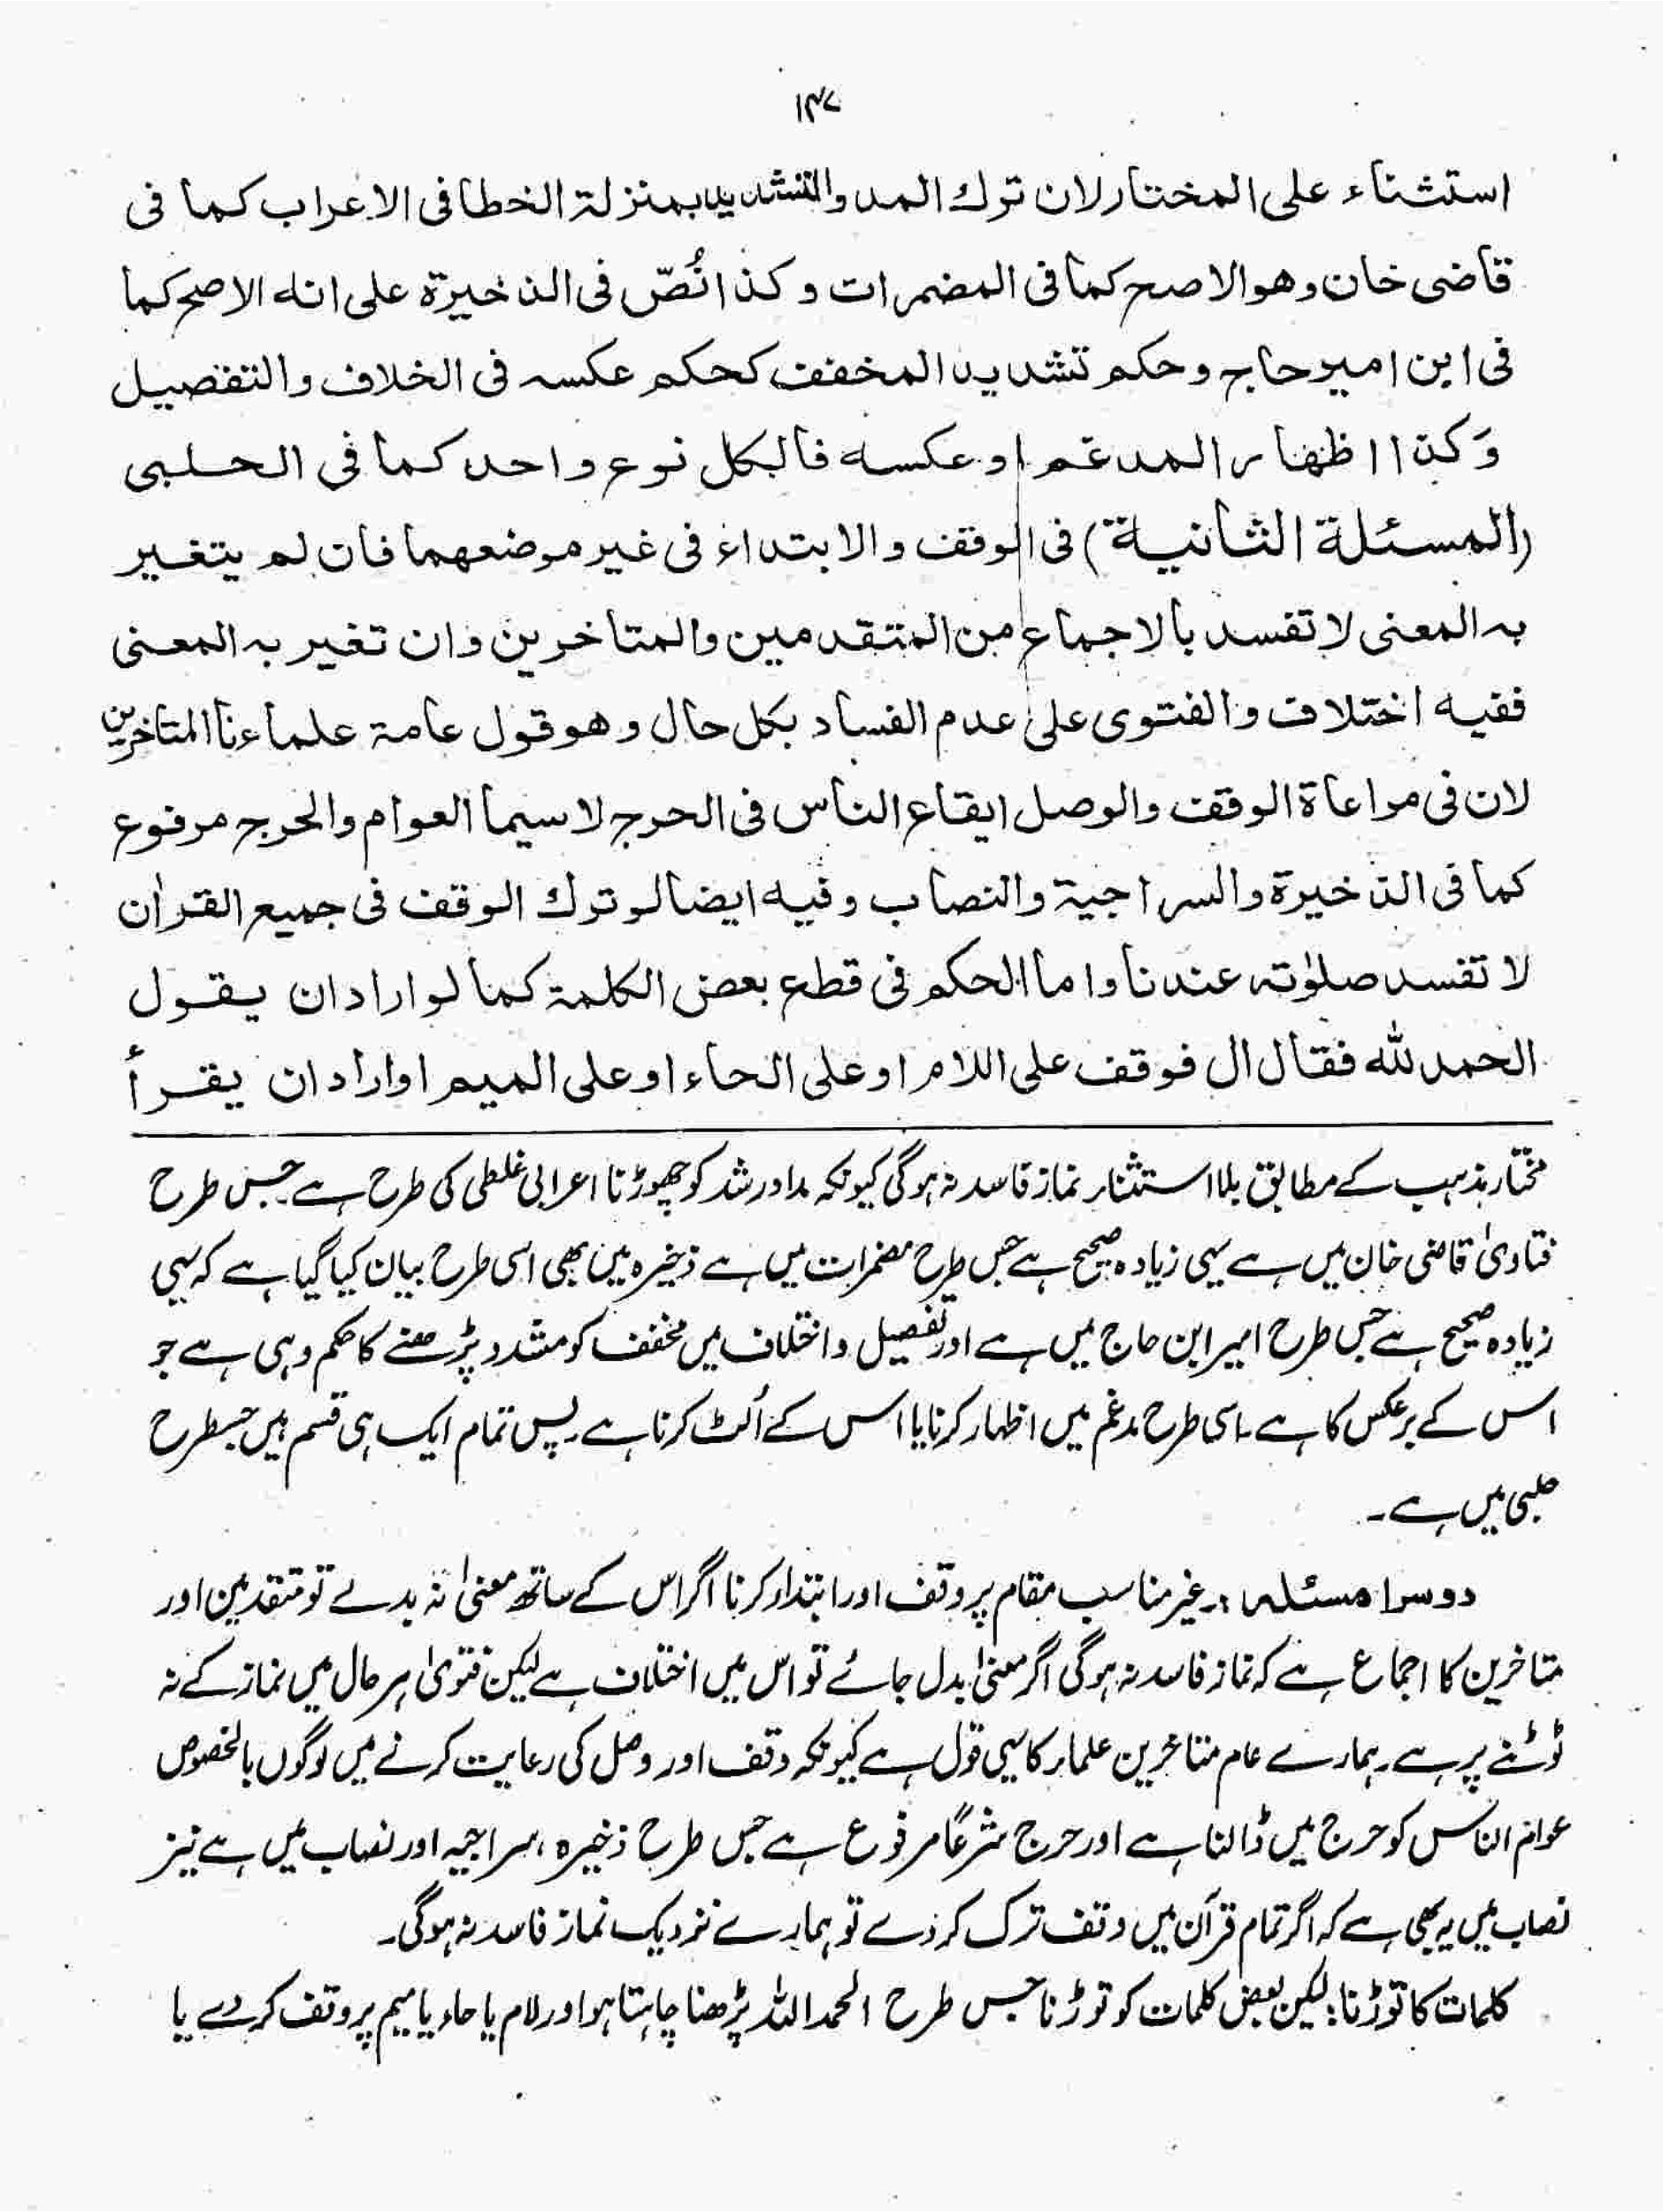 ۱۴۷
استثناء على المختار لان ترك المد والتشديد بمنزلة الخطا فى الاعراب كما فى
قاضى خان وهو الاصح كما فى المضمرات و كذا نُصّ فى الذخيرة على انه الاصح كما
فى ابن امير حاج و حكم تشديد المخفف كحكم عكسه فى الخلاف والتفصيل
وَكذا اظهار المدغم او عكسه فالكل نوع واحد كما فى الحلبى
(المسئلة الثانية) فى الوقف والابتداء فى غير موضعهما فان لم يتغير
به المعنى لا تفسد بالاجماع من المتقدمين والمتاخرين وان تغير به المعنى
ففيه اختلاف والفتوى على عدم الفساد بكل حال وهو قول عامة علماءنا المتاخرين
لان فى مراعاة الوقف والوصل ايقاع الناس فى الحرج لا سيما العوام والحرج مرفوع
كما فى الذخيرة والسراجية والنصاب وفيه ايضا لو ترك الوقف فى جميع القران
لا تفسد صلوٰته عندنا واما الحكم فى قطع بعض الكلمة كما لو اراد ان يقول
الحمد لله فقال ال فوقف على اللام او على الحاء او على الميم او اراد ان يقرأ
مختار مذہب کے مطابق بلا استثناء نماز فاسد نہ ہوگی کیونکہ مد اور شد کو چھوڑنا اعرابی غلطی کی طرح ہے جس طرح
فتاویٰ قاضی خان میں ہے یہی زیادہ صحیح ہے جس طرح مضمرات میں ہے ذخیرہ میں بھی اسی طرح بیان کیا گیا ہے کہ یہی
زیادہ صحیح ہے جس طرح امیر ابن حاج میں ہے اور تفصیل و اختلاف میں مخفف کو مشدد پڑھنے کا حکم وہی ہے جو
اس کے برعکس کا ہے۔ اسی طرح مدغم میں اظہار کرنا یا اس کے اُلٹ کرنا ہے۔ پس تمام ایک ہی قسم ہیں جسطرح
حلبی میں ہے۔
دوسرا مسئلہ:۔ غیر مناسب مقام پر وقف اور ابتداء کرنا اگر اس کے ساتھ معنیٰ نہ بدلے تو متقدمین اور
متاخرین کا اجماع ہے کہ نماز فاسد نہ ہوگی اگر معنیٰ بدل جائے تو اس میں اختلاف ہے لیکن فتویٰ ہر حال میں نماز کے نہ
ٹوٹنے پر ہے۔ ہمارے عام متاخرین علماء کا یہی قول ہے کیونکہ وقف اور وصل کی رعایت کرنے میں لوگوں بالخصوص
عوام الناس کو حرج میں ڈالنا ہے اور حرج شرعًا مرفوع ہے جس طرح ذخیرہ، سراجیہ اور نصاب میں ہے نیز
نصاب میں یہ بھی ہے کہ اگر تمام قرآن میں وقف ترک کر دے تو ہمارے نزدیک نماز فاسد نہ ہوگی۔
کلمات کا توڑنا: لیکن بعض کلمات کو توڑنا جس طرح الحمد اللہ پڑھنا چاہتا ہو اور لام یا حاء یا میم پر وقف کر دے یا